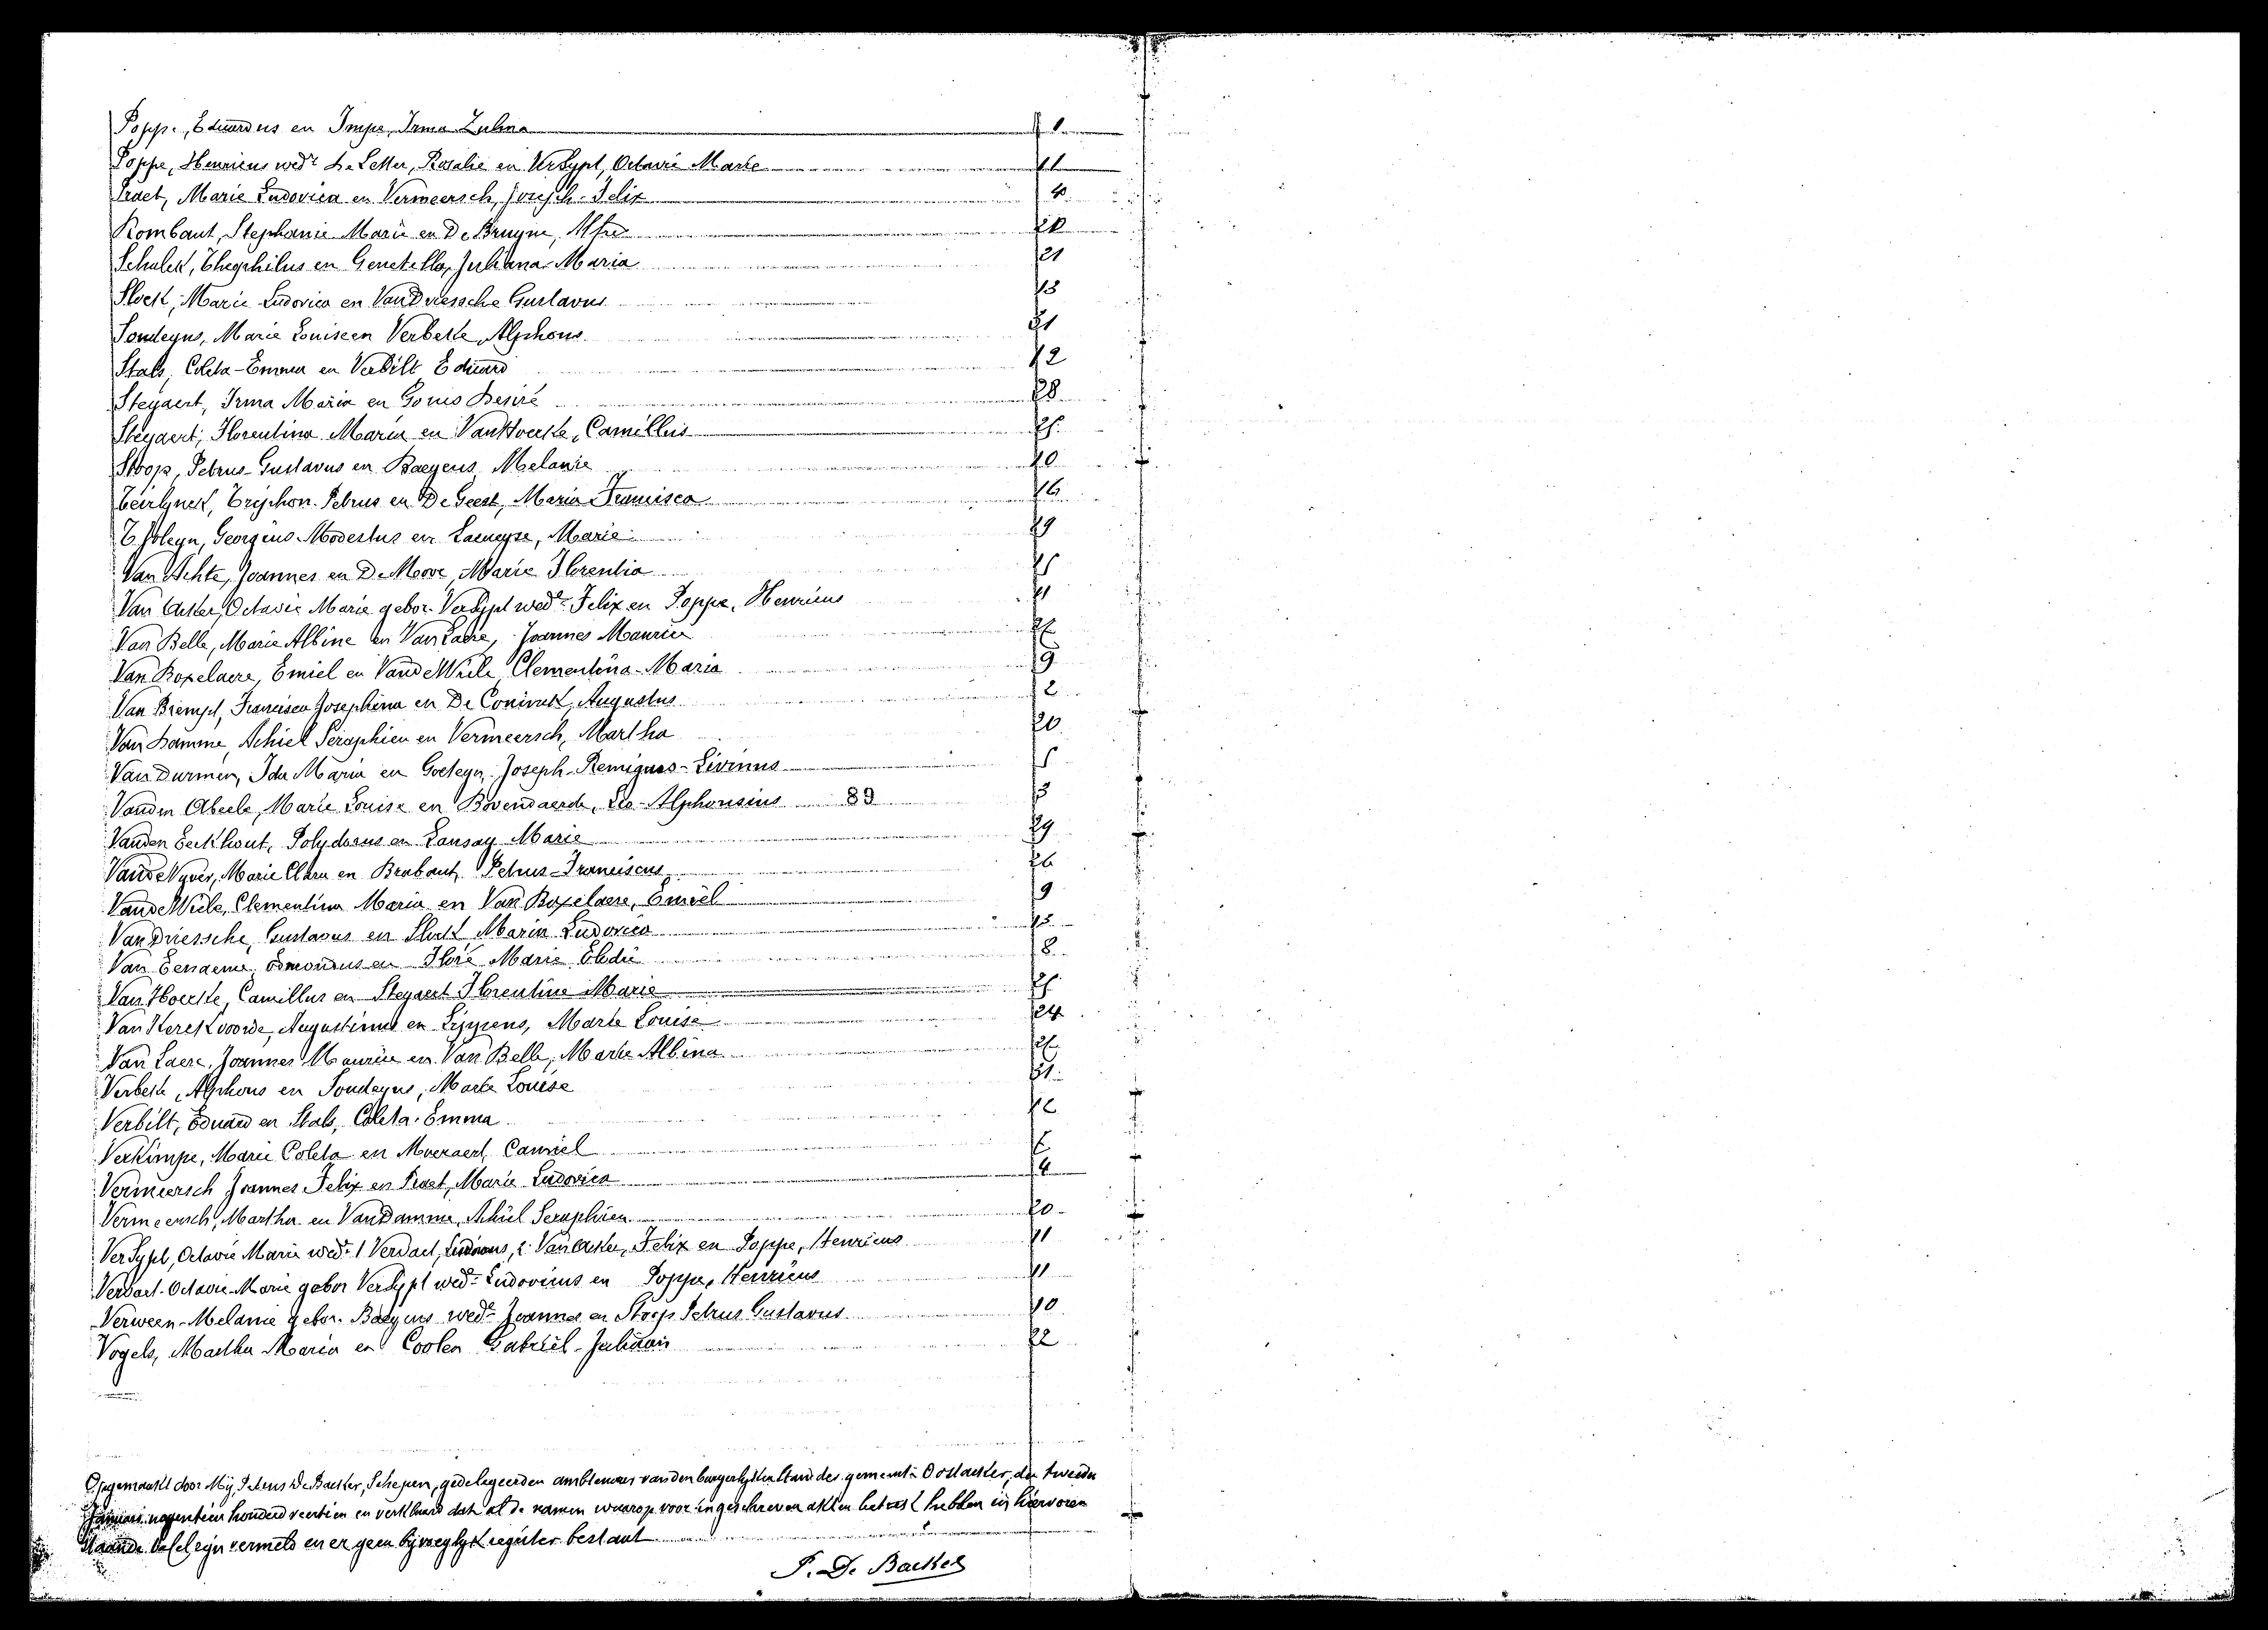 Poppe, Eduardus en Impe, Irma Zulma 1
Poppe, Henricus wedr De Letter, Rosalie en VerSypt, Octavie Marie 11
Praet, Marie Ludovica en Vermeersch, Joseph Felix 4
Rombaut, Stephanie Marie en De Bruyne, Alfred
Schulck, Theophilus en Genetello, Juliana Maria 21
Slock, Marie Ludovica en Van Driessche Gustavus 13
Sondeyns, Marie Louise en Verbeke, Alphons 31
Stals, Coleta-Emma en Verbilt Eduard 12
Steyaert, Irma Maria en Goris Desiré 28
Steyaert, Florentina Maria en VanHoecke, Camillus 25
Stoops, Petrus-Gustavus en Baeyens Melanie 10
Teirlynck, Tryphon Petrus en De Geest, Maria Francisca 16
T'Joleyn, Georgius Modestus en Laeneyse, Marie 29
Van Achte, Joannes en De Moor, Marie Florentia
Van Acker, Octavie Marie gebor. VerSypt wede Felix en Poppe, Henricus 11
Van Belle, Marie Albine en Van Laere, Joannes Maurice
Van Boxelaere, Emiel en Vande Wiele Clementina-Maria 19
Van Brempt, Francisca Josephina en De Coninck, Augustus 2
Van Damme, Achiel Seraphien en Vermeersch, Martha 20
Van Durmen, Ida Maria en Goeteyn, Joseph-Remigius-Livinus
Vanden Abeele, Marie Louise en Bovendaerde, Leo-Alphonsius 89 3
Vanden Eeckhout, Polydorus en Lansay Marie 29
VandeVyver, Marie Clara en Brabant, Petrus-Franciscus 26
Vande Wiele, Clementina Maria en Van Boxelaere, Emiel 19
Van Driessche, Gustavus en Slock Maria Ludovica 13
Van Eenaeme Edmondus en Floré Marie Elodie 8
Van Hoecke, Camillus en Steyaert Florentine Marie 25
Van Kerckvoorde, Augustinus en Lippens, Marie Louise 24
Van Laere, Joannes Maurice en Van Belle, Marie Albina
Verbeke, Alphons en Sondeyns, Marie Louise 31
Verbilt, Eduard en Stals, Coleta-Emma 12
Verkimpe, Marie Coleta en Moeraert, Camiel
Vermeersch Joannes Felix en Praet, Marie Ludovica 4
Vermeersch, Martha en VanDamme, Achiel Seraphien 20
VerSypt, Octavie Marie wede 1 Verdaet, Ludovicus, 2 Van Acker, Felix en Poppe, Henricus 11
Verdaet-Octavie-Marie gebor VerSypt wede Ludovicus en Poppe, Henricus 11
Verween-Melanie gebor. Baeyens wede Joannes en Stoops Petrus Gustavus 10
Vogels, Martha Maria en Coolen Gabriël-Juliaan 22
Opgemaakt door Mij, Petrus De Backer, Schepen, gedelegeerden ambtenaar van den burgerlijken stand der gemeente Oostacker, den tweeden
Januari negentien honderd veertien en verklaard dat al de namen waarop voor ingeschreven akten betrek hebben in hiervoren
staande tafel zijn vermeld en er geen bijvoeglijk register bestaat
P. De Backer